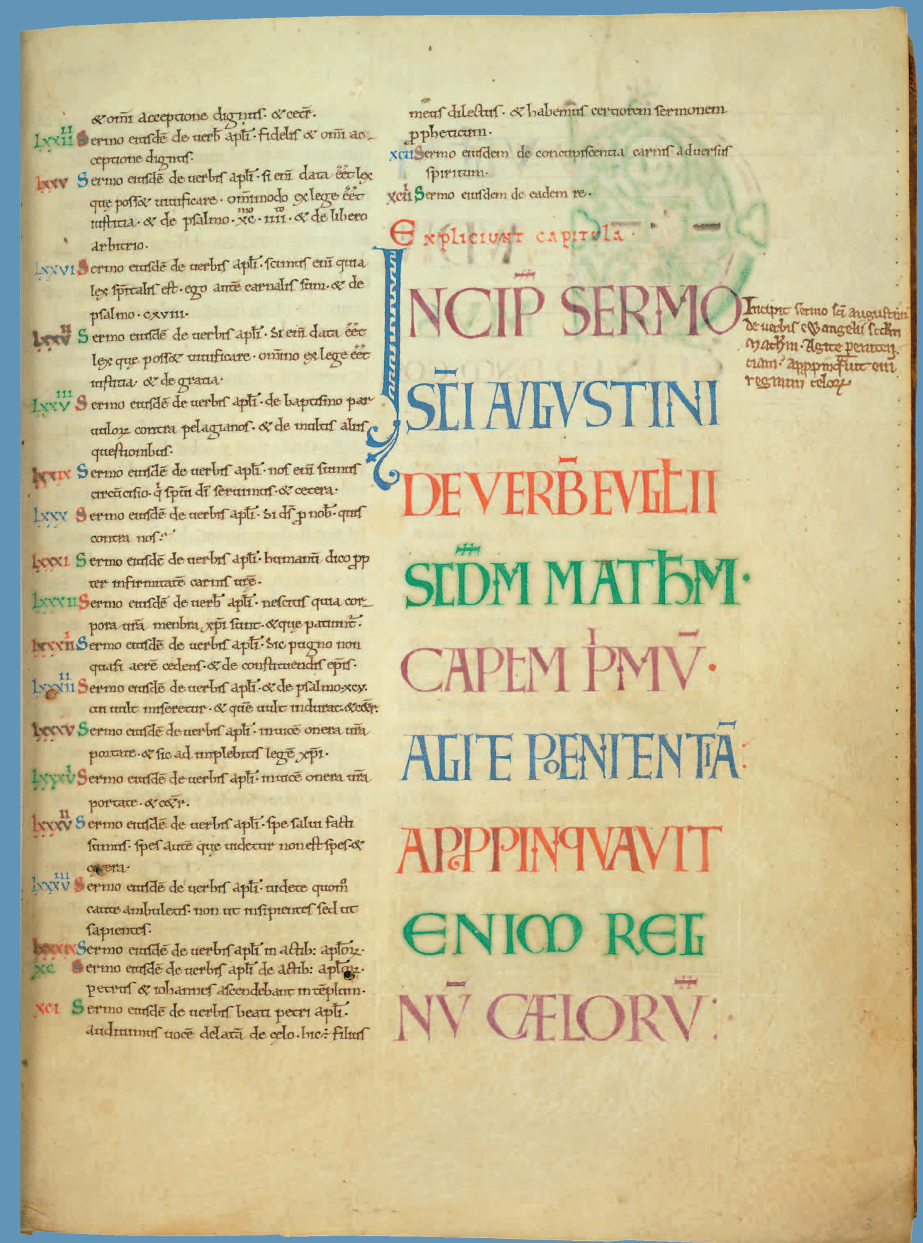 & om̄i acceptione dignus. & ceter̄.
lxxiiii Sermo eiusdē de uerb̄ apłi. fidelis & om̄i ac-
ceptione dignus.
lxxv Sermo eiusdē de uerbis apłi. si eni data eēt lex
que posset uiuificare. om̄imodo ex lege eēt
iustitia. & de psalmo. xc.mo iiii.to & de libero
arbitrio.
lxxvi Sermo eiusdē de uerbis apłi. scimus eni quia
lex sp̄italis est. ego autē carnalis sum. & de
psalmo. cxviii.
lxxvii Sermo eiusdē de uerbis apłi. Si eni data eēt
lex que posset uiuificare. om̄ino ex lege eēt
iustitia. & de gratia.
lxxviii Sermo eiusdē de uerbis apłi. de baptismo par
uuloꝝ contra pelagianos. & de multis aliis
questionibus.
lxxix Sermo eiusdē de uerbis apłi. nos eni sumus
circūcisio. q̇ sp̄ui dī seruimus. & cetera.
lxxx Sermo eiusdē de uerbis apłi. Si dſ ꝓ nob̄. quis
contra nos?
lxxxi Sermo eiusdē de uerbis apłi. humanū dico ꝓp
ter infirmitatē carnis urē.
lxxxii Sermo eiusdē de uerb̄ apłi. nescitis quia cor-
pora urā menbra xp̄i sunt. & que
lxxxiii Sermo eiusdē de uerbis apłi. Sic pugno non
quasi aerē cedens. & de constituendis ep̄is.
lxxxiiii Sermo eiusdē de uerbis apłi. & de psalmo. xcv.
cui uult miseretur. & quē uult indurat. & ceter̄.
lxxxv Sermo eiusdē de uerbis apłi. inuicē onera urā
portate. & sic adimplebitis legē xp̄i.
lxxxvi Sermo eiusdē de uerbis apłi. inuicē onera urā
portate. & ceter̄.
lxxxvii Sermo eiusdē de uerbis apłi. spe salui facti
sumus. spes autē que uidetur non est spes. &
cetera.
lxxxviii Sermo eiusdē de uerbis apłi. uidete quom̄
caute ambuletis. non ut insipientes sed ut
sapientes.
lxxxix Sermo eiusdē de uerbis apłi in actib: apłoꝝ.
xc Sermo eiusdē de uerbis apłi de actib: apłoꝝ.
petrus & iohannes ascendebant in tēplum.
xci Sermo eiusdē de uerbis beati petri apłi.
audiuimus uocē delatā de celo. hic ÷ filius
meus dilectus. & habemus certiorem sermonem
ꝓpheticum.
xcii Sermo eiusdem de concupiscentia carnis aduersus
spiritum.
xciii Sermo eiusdem de eadem re.
Expliciunt capitula.
INCIP̄ SERMO
SC̄I AUGUSTINI
DE VERB̄ EVGŁII
SCDM̄ MATHM.
CAPEM PiMV̄.
AGITE PoENITENTIĀ:
APꝒPINQVAVIT
ENIM REG
NV̄ CÆLORV̄:
Incipit sermo scī augustini
de uerbis ewangelii scdm
Mathm. Agite peniten
tiam. appꝓpinquit eni
regnum celoꝝ